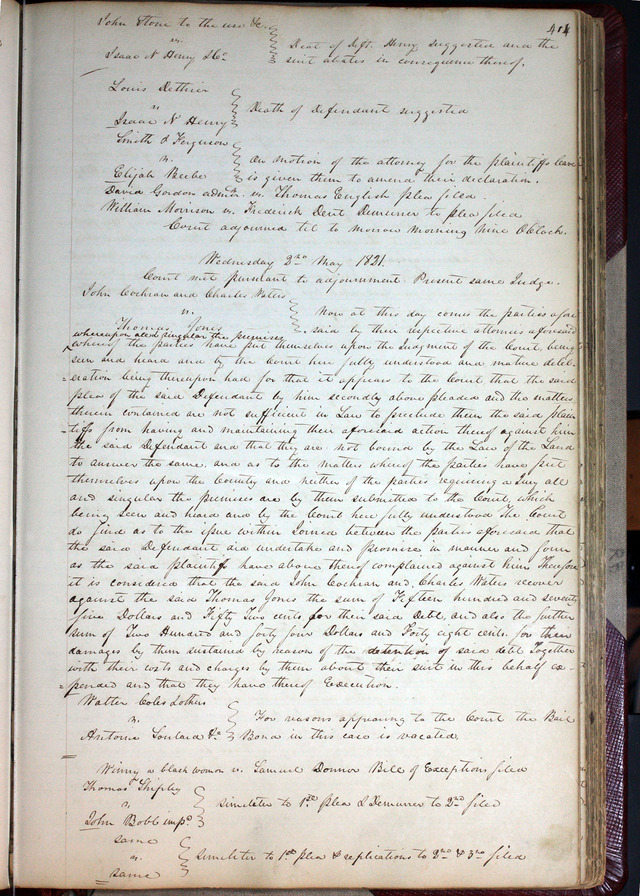 404
John Stone to the use &c.
vs.
Isaac N Henry & Co
Deat of deft. Henry suggested and the
suit abates in consequence thereof.
Louis Dethier
vs
Isaac N Henry
Death of Defendant suggested
Smith & Ferguson
vs.
Elijah Beebe
On motion of the attorney for the plaintiffs leave
is given them to amend their declaration.
David Gordon admr vs. Thomas English plea filed.
William Morrison vs. Frederick Dent Demurrer to plea filed
Court adjourned til to morrow morning nine OClock.
Wednesday 2nd May 1821.
Court met pursuant to adjournment. Present same Judge.
John Cochran and Charles Waters
vs.
Thomas Jones
Now at this day comes the parties afore
said by their respective attornies aforesaid
whereupon all and singular the premises
whereof the parties have put themselves upon the Judgment of the Court, being
seen and heard and by the Court here fully understood and mature delib-
eration being thereupon had for that it appears to the Court that the said
plea of the said Defendant by him secondly above pleaded and the matters
therein contained are not sufficient in Law to preclude them the said plain
tiffs from having and maintaining their aforesaid action thereof against him
the said Defendant and that they are not bound by the Law of the Land
to answer the same. and as to the matters whereof the parties have put
themselves upon the County and neither of the parties requiring a Jury all
and singular the premises are by them submitted to the Court, which
being seen and heard and by the Court here fully understood The Court
do find as to the issue within Joined between the parties aforesaid that
the said Defendant did undertake and promise in manner and form
as the said plaintiffs have above thereof complained against him Therefore
it is considered that the said John Cochran and Charles Waters recover
against the said Thomas Jones the sum of Fifteen hundred and seventy
five Dollars and Fifty Two cents for their said Debt, and also the further
sum of Two Hundred and forty four Dollars and Forty eight cents for their
damages by them sustained by reason of the detention of said debt Together
with their costs and charges by them about their suit in this behalf ex-
pended and that they have thereof Execution.
Walter Coles Lothers
vs.
Antoine Soulard &c
For reasons appearing to the Court the Bail
Bond in this case is vacated.
Winny a black woman vs. Samuel Donner Bill of Exceptions filed
Thomas Shipley
vs
John Bobb impd
Similiter to 1st plea & Demurrer to 2nd filed
same
vs.
same
Similiter to 1st plea & replications to 2nd & 3rd filed